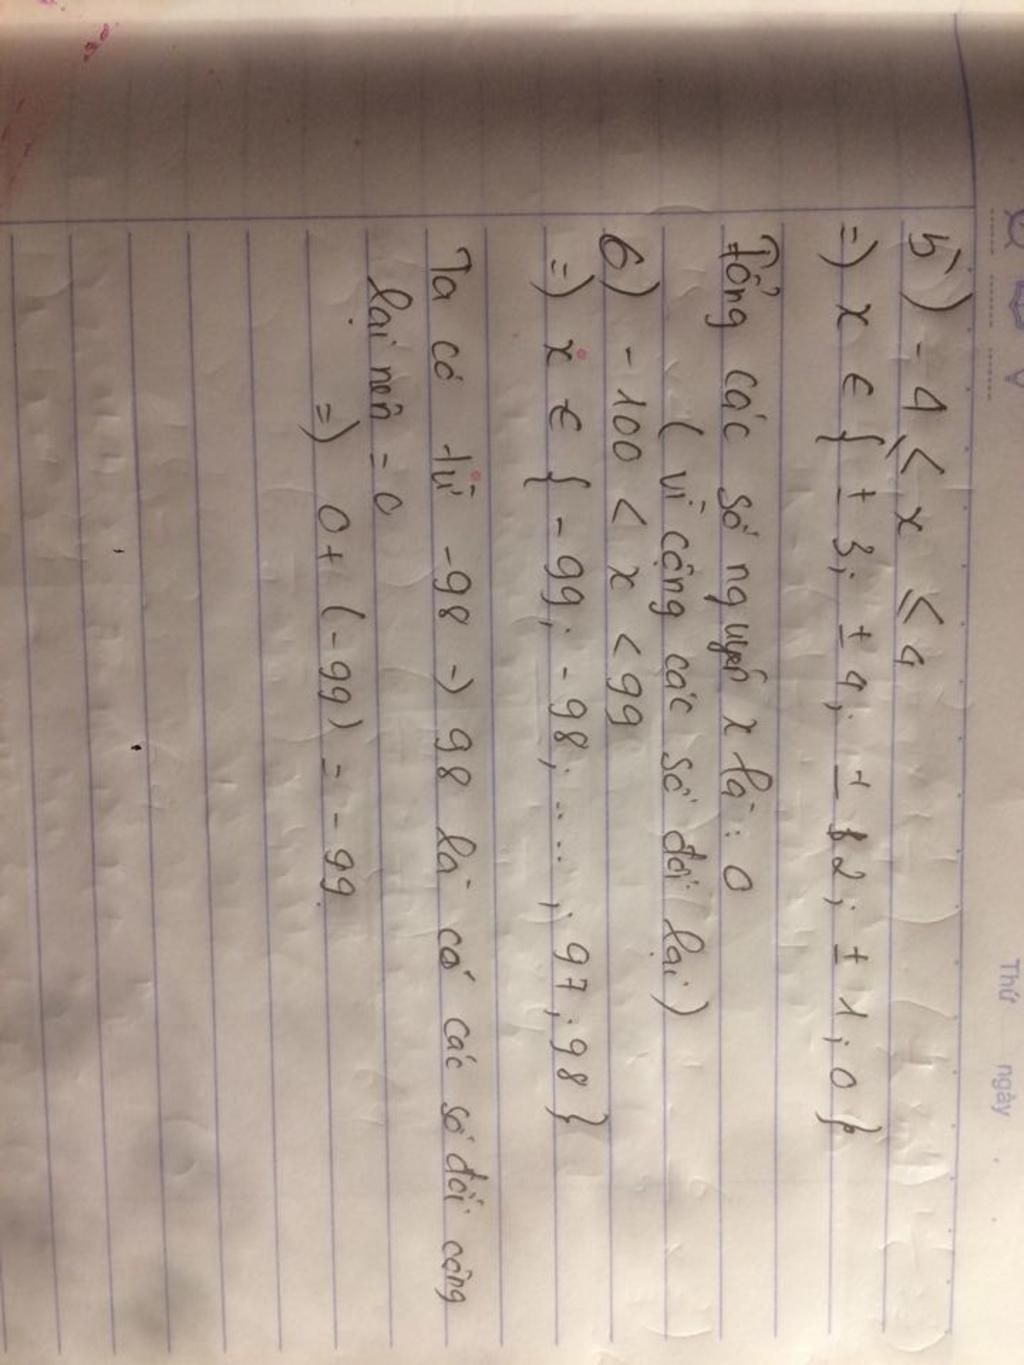 Thứ ngày
5) - 4 ≤ x ≤ 4
=) x ∈ { ± 3; ± 4; ± 2; ± 1; 0 }
Tổng các số nguyên x là: 0
( vì cộng các số đối lại )
6) - 100 < x < 99
=) x ∈ { - 99; - 98; ....; 97; 98 }
Ta có từ -98 -) 98 là có các số đối cộng
lại nên = 0
=) 0 + (-99) = - 99